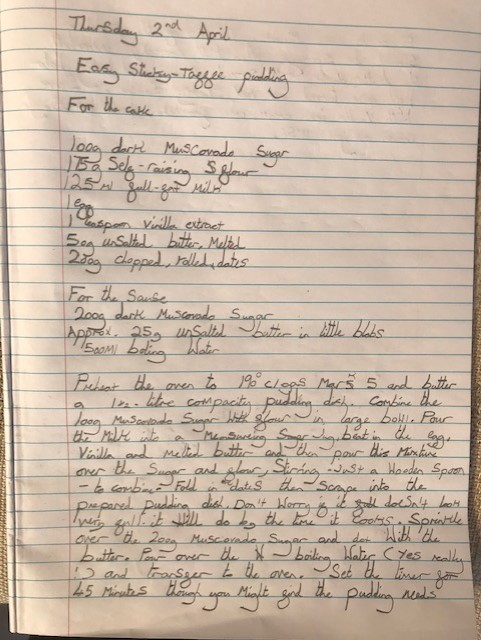 Thursday 2nd April
Easy Sticky-Toffee pudding
For the cake
100g dark Muscovado Sugar
175g Self-raising flour
125 ml full-fat Milk
1 egg
1 teaspoon vinilla extract
50g unSalted butter, Melted
200g chopped, rolled, dates
For the Sause
200g dark Muscovado Sugar
Approx. 25g unSalted butter in little blobs
500Ml boiling Water
Preheat the oven to 190°c/gas Mark 5 and butter
a litre compacity pudding dish. Combine the
100g Muscovado Sugar With flour in large bowl. Pour
the Milk into a Measureing Jug, beat in the egg,
Vinilla and Melted butter and then pour this Mixture
over the Sugar and flour, Stirring - Just a Wooden Spoon
- to combine. Fold in dates then Scrape into the
prepared pudding dish. Don't Worry if it doesn't look
very full. it Will do by the time it Cooks. Sprinkle
over the 200g Muscovado Sugar and dot With the
butter. Pour over the boiling Water (Yes really
!) and transfer to the oven. Set the timer for
45 Minutes though you Might find the pudding needs